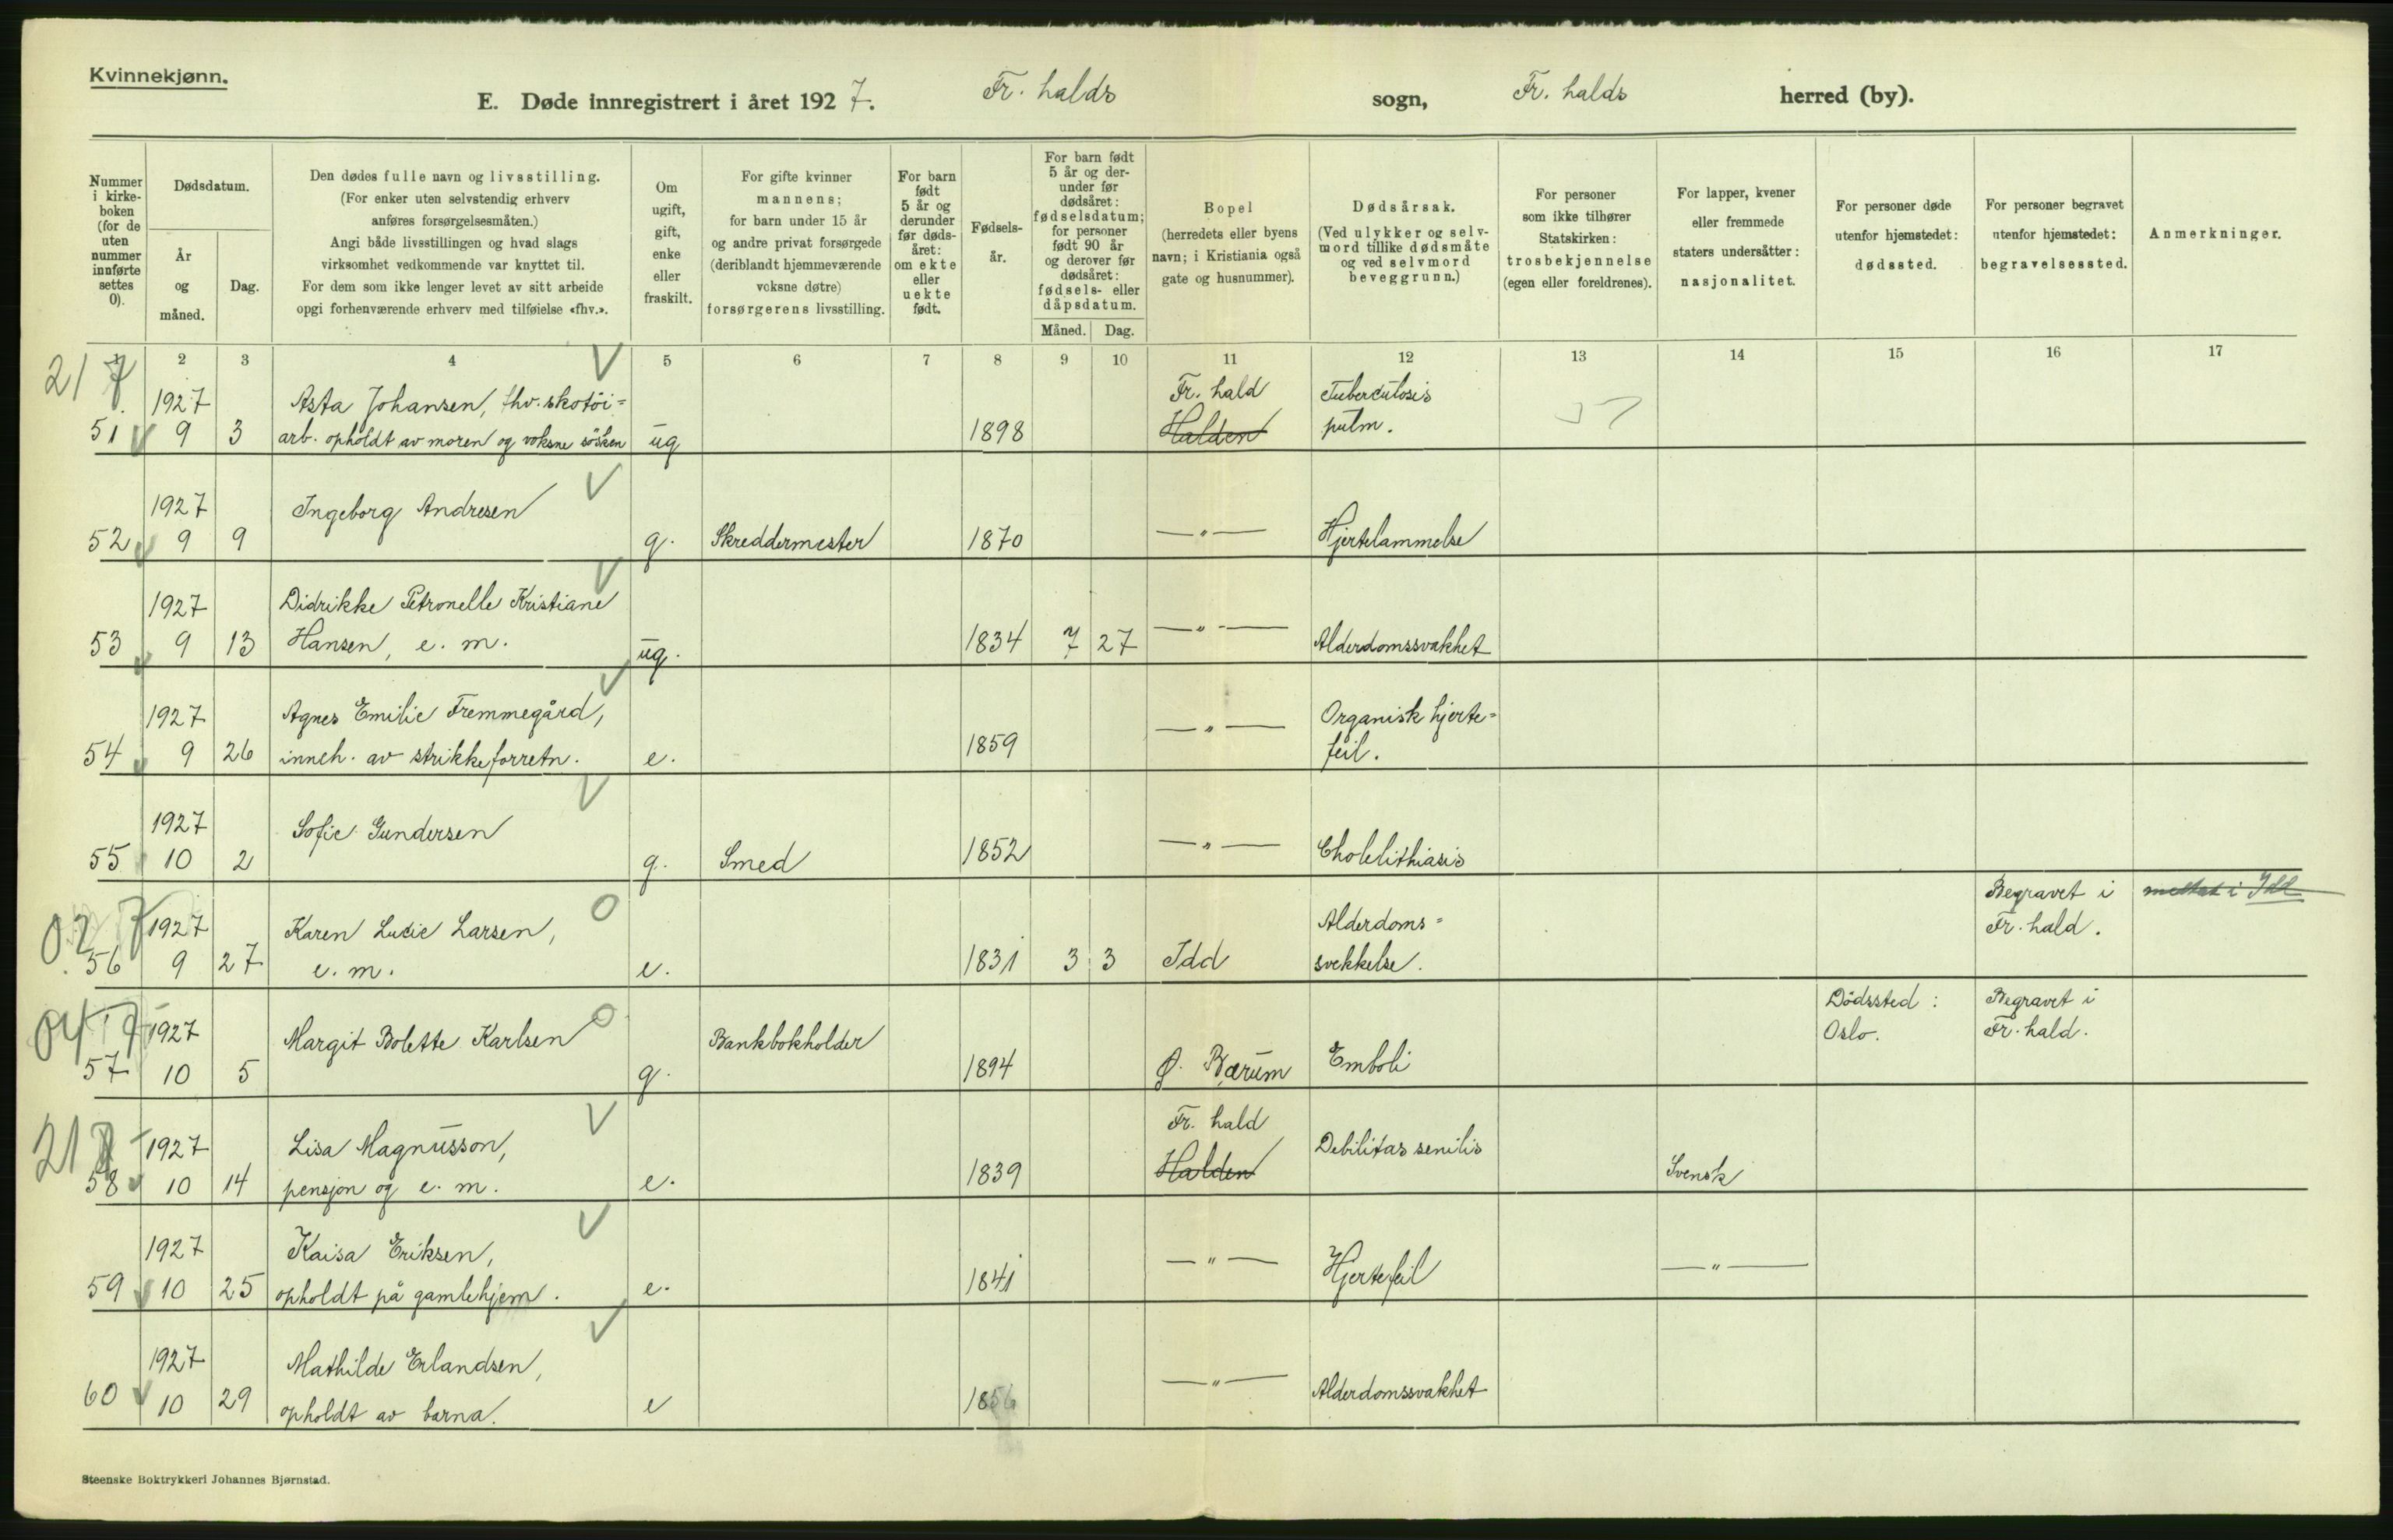 Kvinnekjønn.
E. Døde innregistrert i året 1927. Fr. halds sogn, Fr. halds herred (by).
Nummer i kirkeboken (for de uten nummer innførte settes 0).
Dødsdatum.
År og måned.
Dag.
Den dødes fulle navn og livsstilling.
(For enker uten selvstendig erhverv
anføres forsørgelsesmåten.)
Angi både livsstillingen og hvad slags
virksomhet vedkommende var knyttet til.
For dem som ikke lenger levet av sitt arbeide
opgi forhenværende erhverv med tilføielse «fhv.».
Om ugift, gift, enke eller fraskilt.
For gifte kvinner
mannens;
for barn under 15 år
og andre privat forsørgede
(deriblandt hjemmeværende
voksne døtre)
forsørgerens livsstilling.
For barn født 5 år og derunder før dødsåret: om ekte eller uekte født.
Fødselsår.
For barn født
5 år og derunder før
dødsåret:
fødselsdatum;
for personer
født 90 år
og derover før
dødsåret:
fødsels- eller
dåpsdatum.
Måned. Dag.
Bopel
(herredets eller byens
navn; i Kristiania også
gate og husnummer).
Dødsårsak.
(Ved ulykker og selvmord tillike dødsmåte
og ved selvmord
beveggrunn.)
For personer
som ikke tilhører
Statskirken:
trosbekjennelse
(egen eller foreldrenes).
For lapper, kvener
eller fremmede
staters undersåtter:
nasjonalitet.
For personer døde
utenfor hjemstedet:
dødssted.
For personer begravet
utenfor hjemstedet:
begravelsessted.
Anmerkninger.
2 3 4 5 6 7 8 9 10 11 12 13 14 15 16 17
217
1927 Asta Johansen, fhv. skotöi= Fr. hald Tuberculosis
51 9 3 arb. opholdt av moren og voksne søsken ug 1898 Halden pulm.
1927 Ingeborg Andresen
52 9 9 g. Skreddermester 1870 —"— Hjertelammelse
1927 Didrikke Petronelle Kristiane
53 9 13 Hansen, e. m. ug. 1834 7 27 —"— Alderdomssvakhet
1927 Agnes Emilie Fremmegård, Organisk hjerte=
54 9 26 inneh. av strikkeforretn. e. 1859 —"— feil.
1927 Sofie Gundersen
55 10 2 g. Smed 1852 —"— Cholelithiasis
1927 Karen Lucie Larsen, Alderdoms= Begravet i meldt i Idd
56 9 27 e. m. e. 1831 3 3 Idd svekkelse. Fr. hald.
1927 Margit Bolette Karlsen Bankbokholder Dödssted: Begravet i
57 10 5 g. 1894 Ø. Bærum Emboli Oslo. Fr. hald.
21
1927 Lisa Magnusson, Fr. hald Debilitas senilis
58 10 14 pensjon og e. m. e. 1839 Halden Svensk
1927 Kaisa Eriksen,
59 10 25 opholdt på gamlehjem. e. 1841 —"— Hjertefeil —"—
1927 Mathilde Erlandsen,
60 10 29 opholdt av barna. e 1856 —"— Alderdomssvakhet
Steenske Boktrykkeri Johannes Bjørnstad.